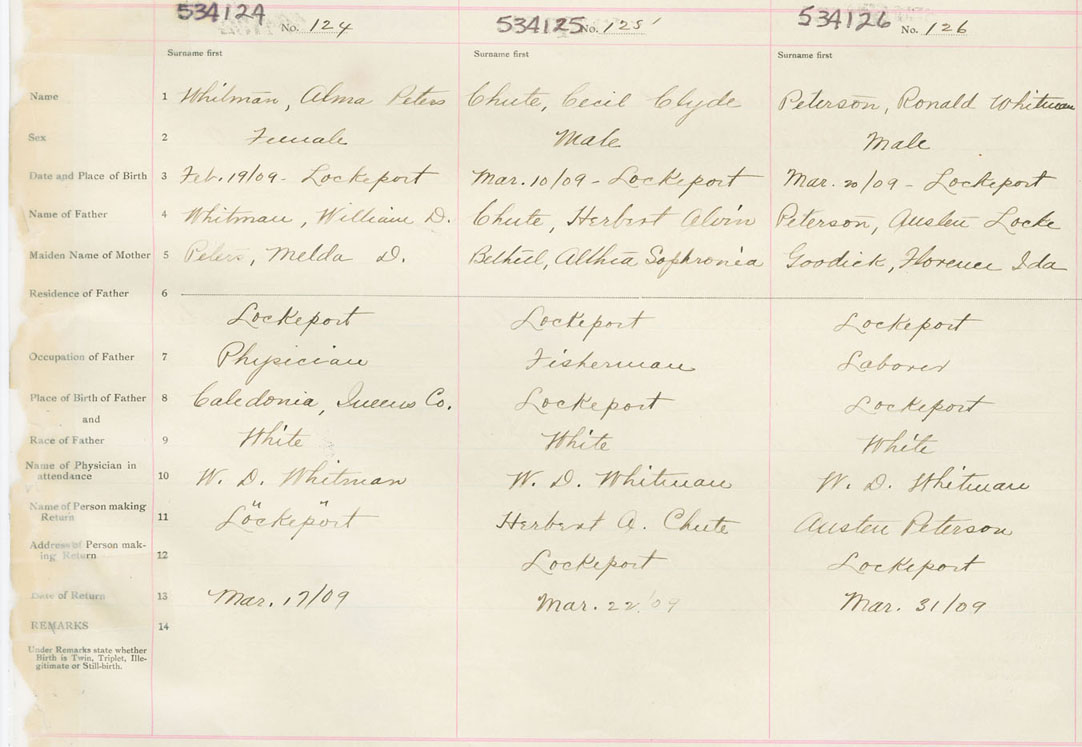 534124 No. 124
534125 No. 125
534126 No. 126
Surname first
Surname first
Surname first
Name 1 Whitman, Alma Peters
Chute, Cecil Clyde
Peterson, Ronald Whitman
Sex 2 Female
Male
Male
Date and Place of Birth 3 Feb. 19/09 - Lockeport
Mar. 10/09 - Lockeport
Mar. 20/09 - Lockeport
Name of Father 4 Whitman, William D.
Chute, Herbert Alvin
Peterson, Austen Locke
Maiden Name of Mother 5 Peters, Melda D.
Bethel, Althea Sophronia
Goodick, Florence Ida
Residence of Father 6
Lockeport
Lockeport
Lockeport
Occupation of Father 7 Physician
Fisherman
Laborer
Place of Birth of Father 8 Caledonia, Queens Co.
Lockeport
Lockeport
and
Race of Father 9 White
White
White
Name of Physician in
attendance 10 W. D. Whitman
W. D. Whitman
W. D. Whitman
Name of Person making
Return 11 " "
Lockeport
Herbert A. Chute
Austen Peterson
Address of Person mak-
ing Return 12
Lockeport
Lockeport
Date of Return 13 Mar. 17/09
Mar. 22/09
Mar. 31/09
REMARKS 14
Under Remarks state whether
Birth is Twin, Triplet, Ille-
gitimate or Still-birth.